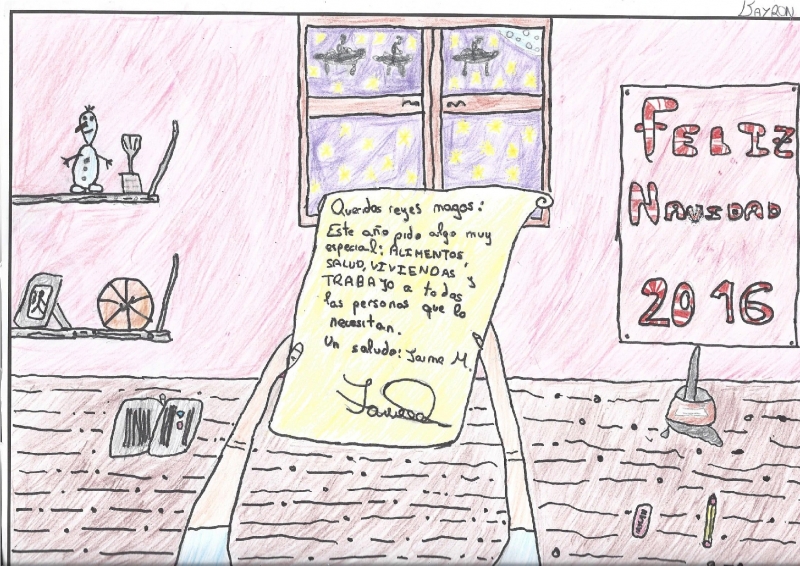 KAYRON
FELIZ
NAVIDAD
2016
Queridos reyes magos:
Este año pido algo muy
especial: ALIMENTOS,
SALUD, VIVIENDAS y
TRABAJO a todas
las personas que lo
necesitan.
Un saludo: Jaime M.